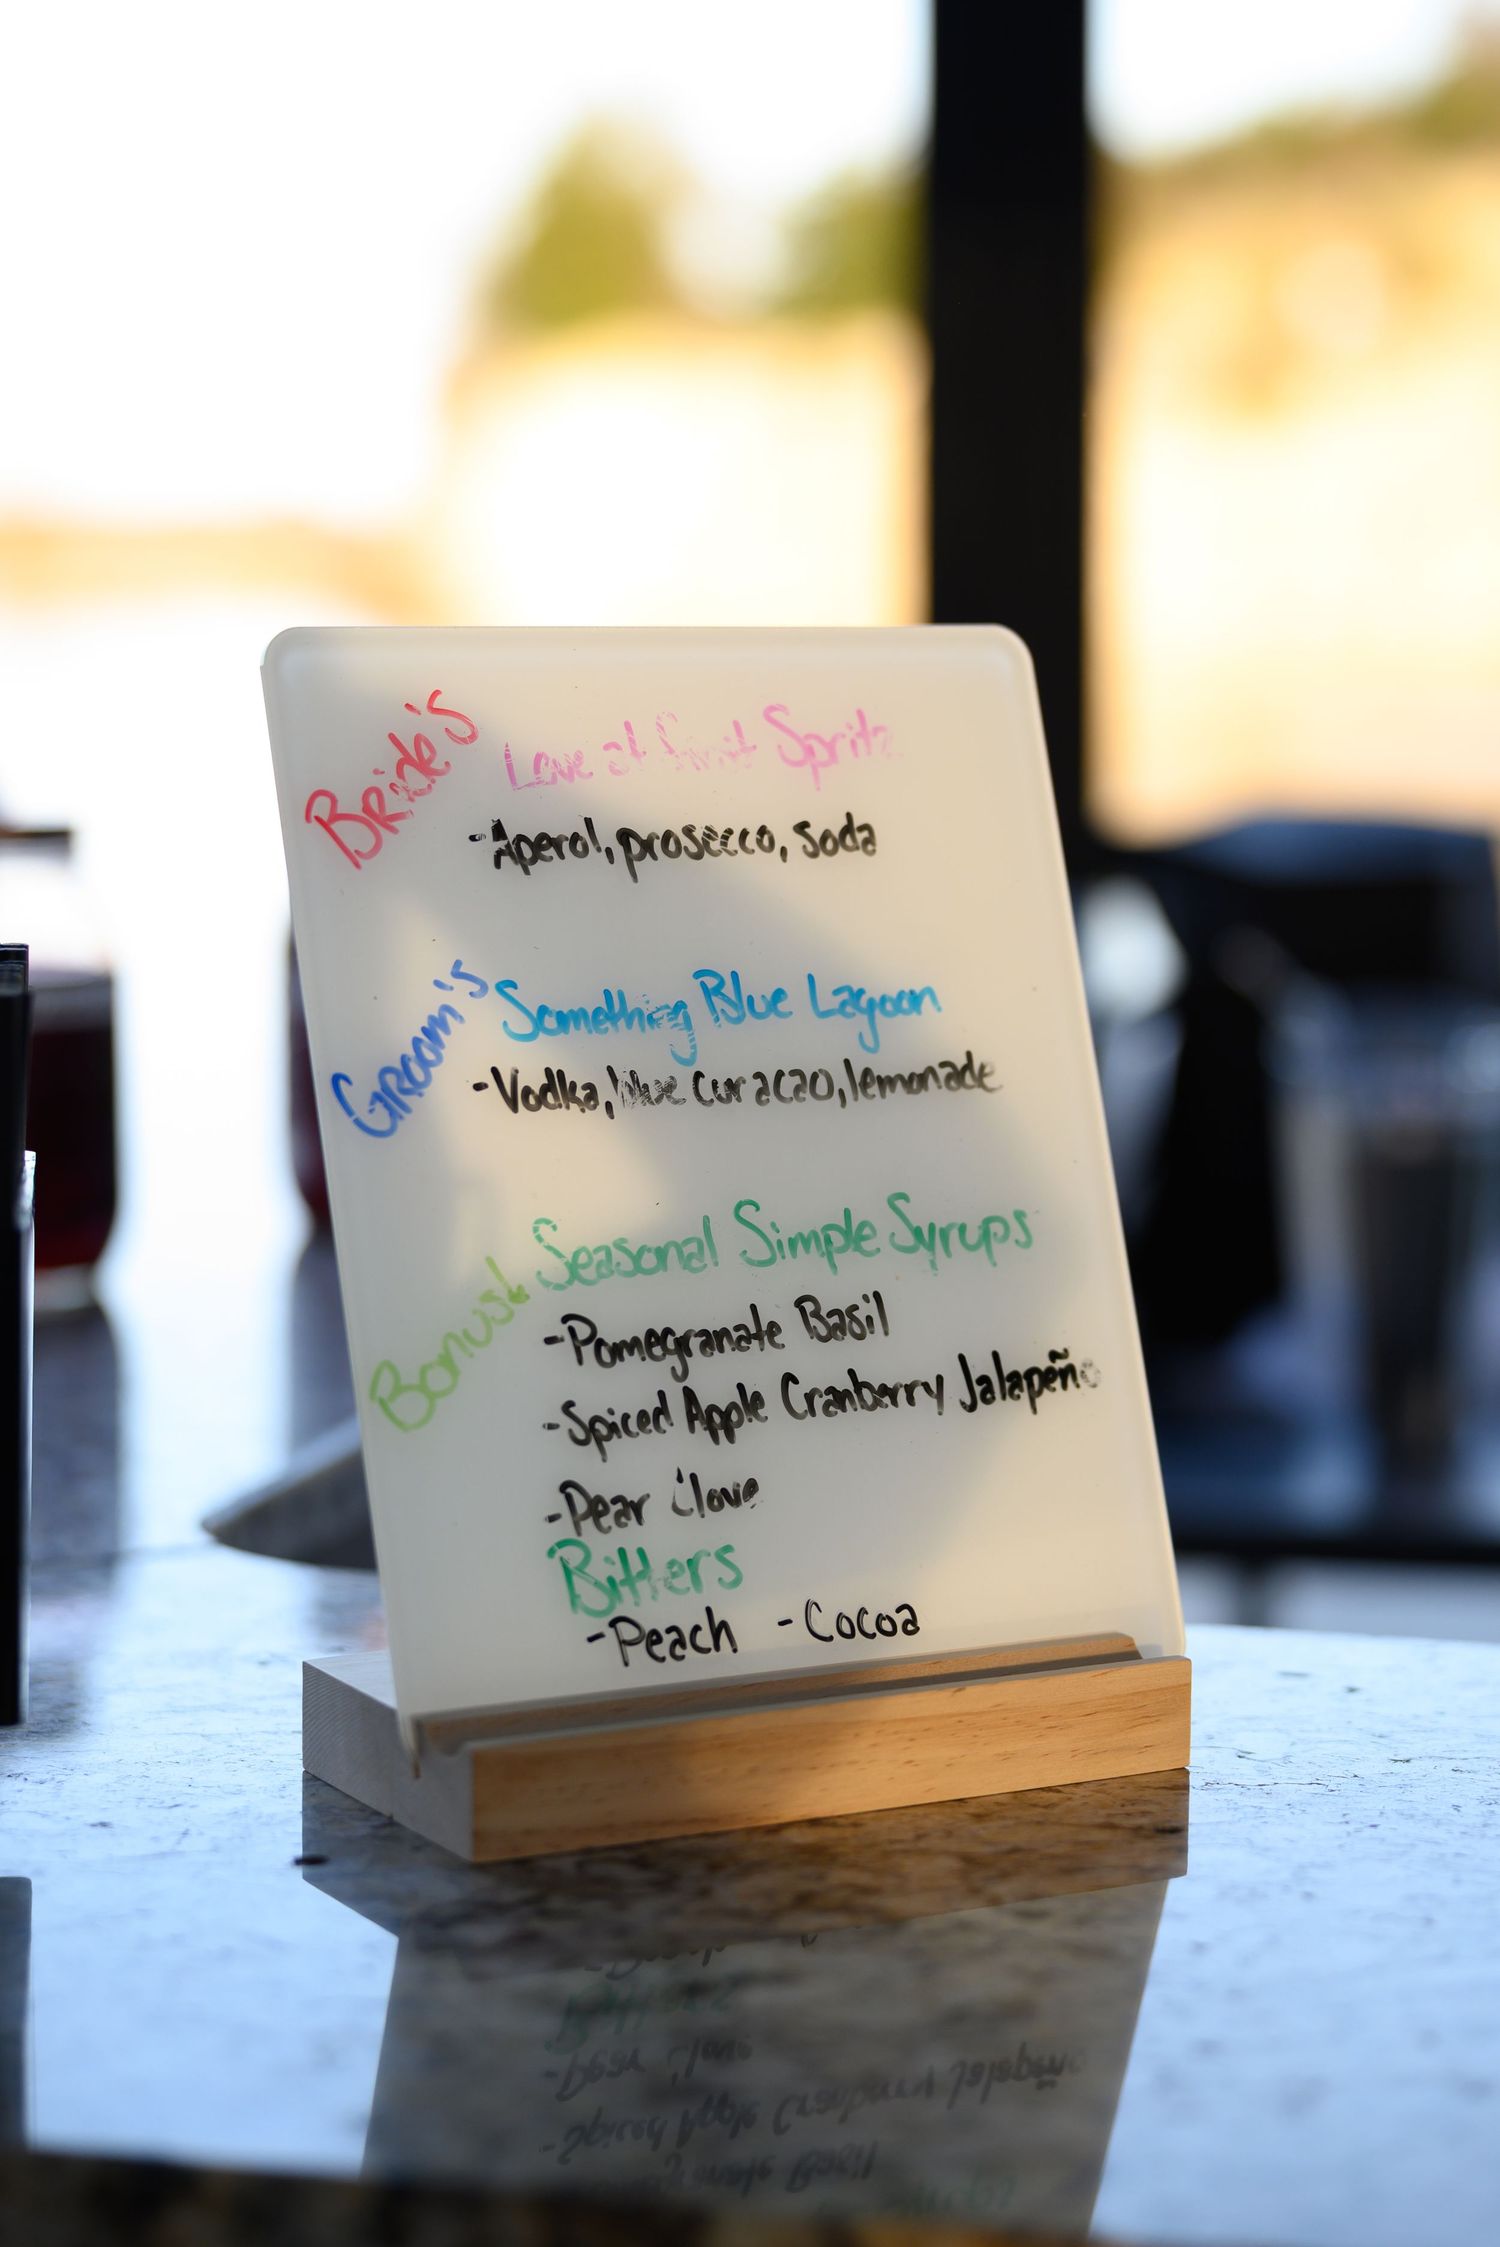 Bride's Love at First Spritz
-Aperol, prosecco, soda
Groom's Something Blue Lagoon
-Vodka, blue curacao, lemonade
Bonus! Seasonal Simple Syrups
-Pomegranate Basil
-Spiced Apple Cranberry Jalapeño
-Pear Clove
Bitters
-Peach -Cocoa